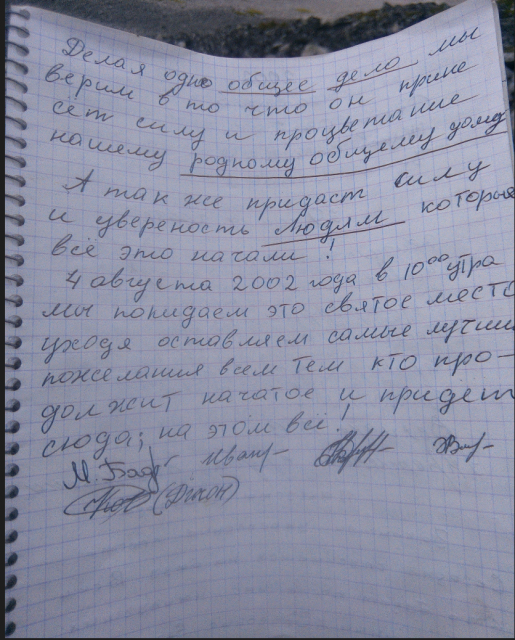 Делая одно общее дело мы
верим в то что он прине
сет силу и процветание
нашему родному общему дому
А так же придаст силу
и увереность людям которые
всё это начали!
4 августа 2002 года в 10⁰⁰ утра
мы покидаем это святое место
уходя оставляем самые лучшие
пожелания всем тем кто про-
должит начатое и придет
сюда; на этом всё!
М. Баф
(Джон)